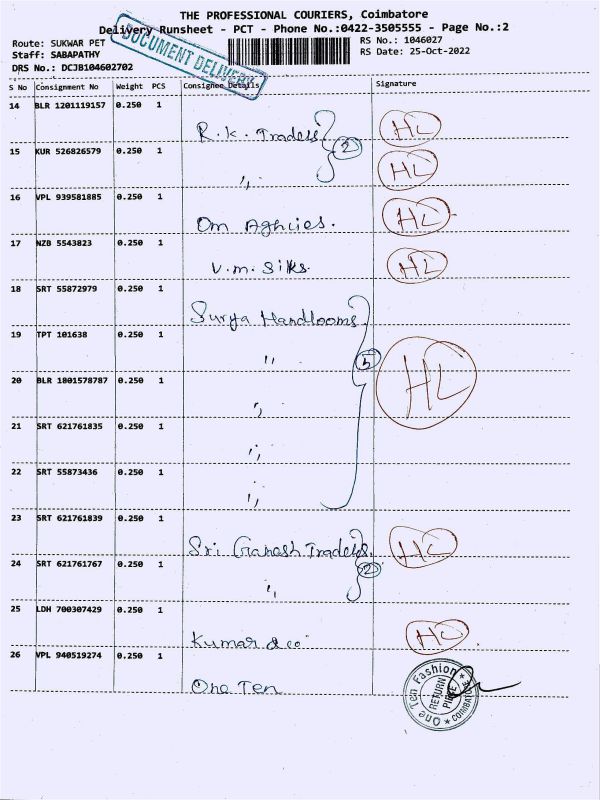 THE PROFESSIONAL COURIERS, Coimbatore
Delivery Runsheet - PCT - Phone No.:0422-3505555 - Page No.:2
Route: SUKWAR PET
Staff: SABAPATHY
DRS No.: DCJB104602702
DOCUMENT DELIVERY
RS No.: 1046027
RS Date: 25-Oct-2022
S No Consignment No Weight PCS Consignee Details Signature
14 BLR 1201119157 0.250 1
R.K. Traders 2 HL
15 KUR 526826579 0.250 1
,, HL
16 VPL 939581885 0.250 1
Om Aghcies. HL
17 NZB 5543823 0.250 1
V.m. Silks. HL
18 SRT 55872979 0.250 1
Surya Handlooms
19 TPT 101638 0.250 1
,, 5 HL
20 BLR 1801578787 0.250 1
,,
21 SRT 621761835 0.250 1
,,
22 SRT 55873436 0.250 1
,,
23 SRT 621761839 0.250 1
Sri Ganesh Traders. HL
24 SRT 621761767 0.250 1
,, 2
25 LDH 700307429 0.250 1
Kumar & co HL
26 VPL 940519274 0.250 1
One Ten
One Ten Fashion
RETURN
COIMBATORE